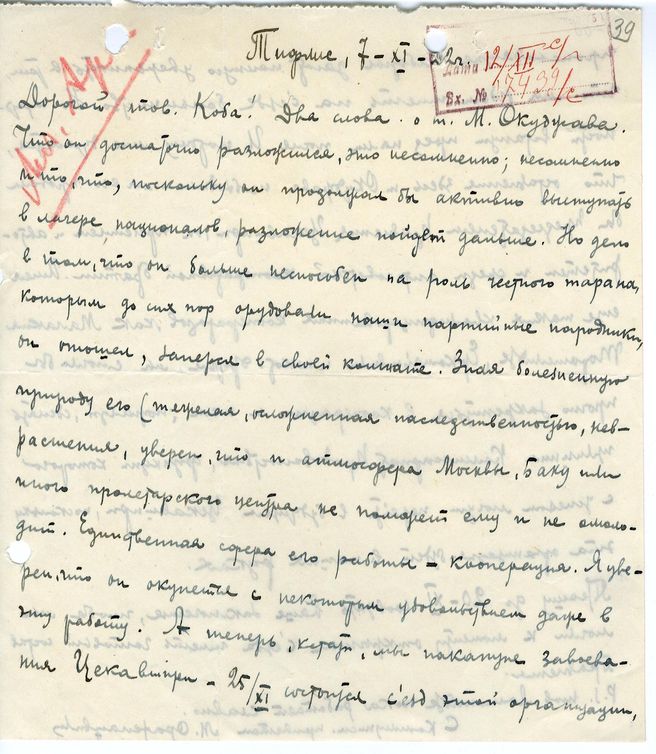 39
Тифлис, 7-XI-22г.
Дата 12/XII
Вх. №
Дорогой тов. Коба! Два слова о т. М. Окуджава.
Что он достаточно разложился, это несомненно; несомненно
и то, что, поскольку он продолжал бы активно выступать
в лагере националов, разложение пойдет дальше. Но дело
в том, что он больше неспособен на роль честного тарана,
которым до сих пор орудовали наши партийные народники,
он отошел, заперся в своей комнате. Зная болезненную
природу его (тяжелая, осложненная наследственностью, нев-
растения, уверен, что и атмосфера Москвы, Баку или
иного пролетарского центра не поможет ему и не омоло-
дит. Единственная сфера его работы – кооперация. Я уве-
рен, что он окунется с некоторым удовольствием даже в
эту работу. А теперь, кстати, мы накануне завоева-
ния Цекавшири – 25/XI состоится с'езд этой организации,